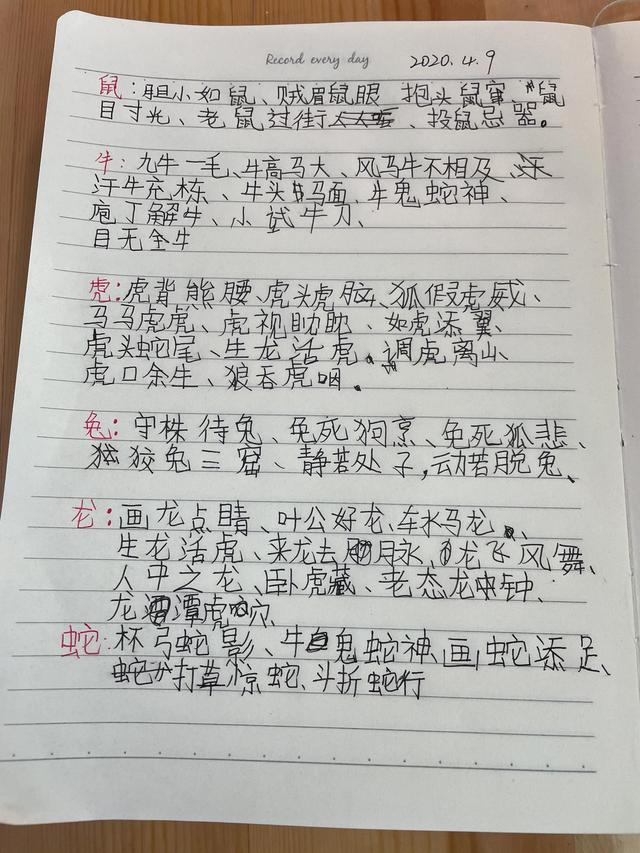 Record every day 2020.4.9
鼠：胆小如鼠、贼眉鼠眼 抱头鼠窜 鼠
目寸光、老鼠过街、投鼠忌器。
牛：九牛一毛、牛高马大、风马牛不相及、
汗牛充栋、牛头马面、牛鬼蛇神、
庖丁解牛、小试牛刀、
目无全牛
虎：虎背熊腰、虎头虎脑、狐假虎威、
马马虎虎、虎视眈眈、如虎添翼、
虎头蛇尾、生龙活虎。调虎离山、
虎口余生、狼吞虎咽。
兔：守株待兔、兔死狗烹、兔死狐悲、
狡兔三窟、静若处子，动若脱兔、
龙：画龙点睛、叶公好龙、车水马龙、
生龙活虎、来龙去月永、龙飞风舞、
人中之龙、卧虎藏、老态龙钟、
龙潭虎穴、
蛇：杯弓蛇影、牛鬼蛇神、画蛇添足、
打草惊蛇、斗折蛇行